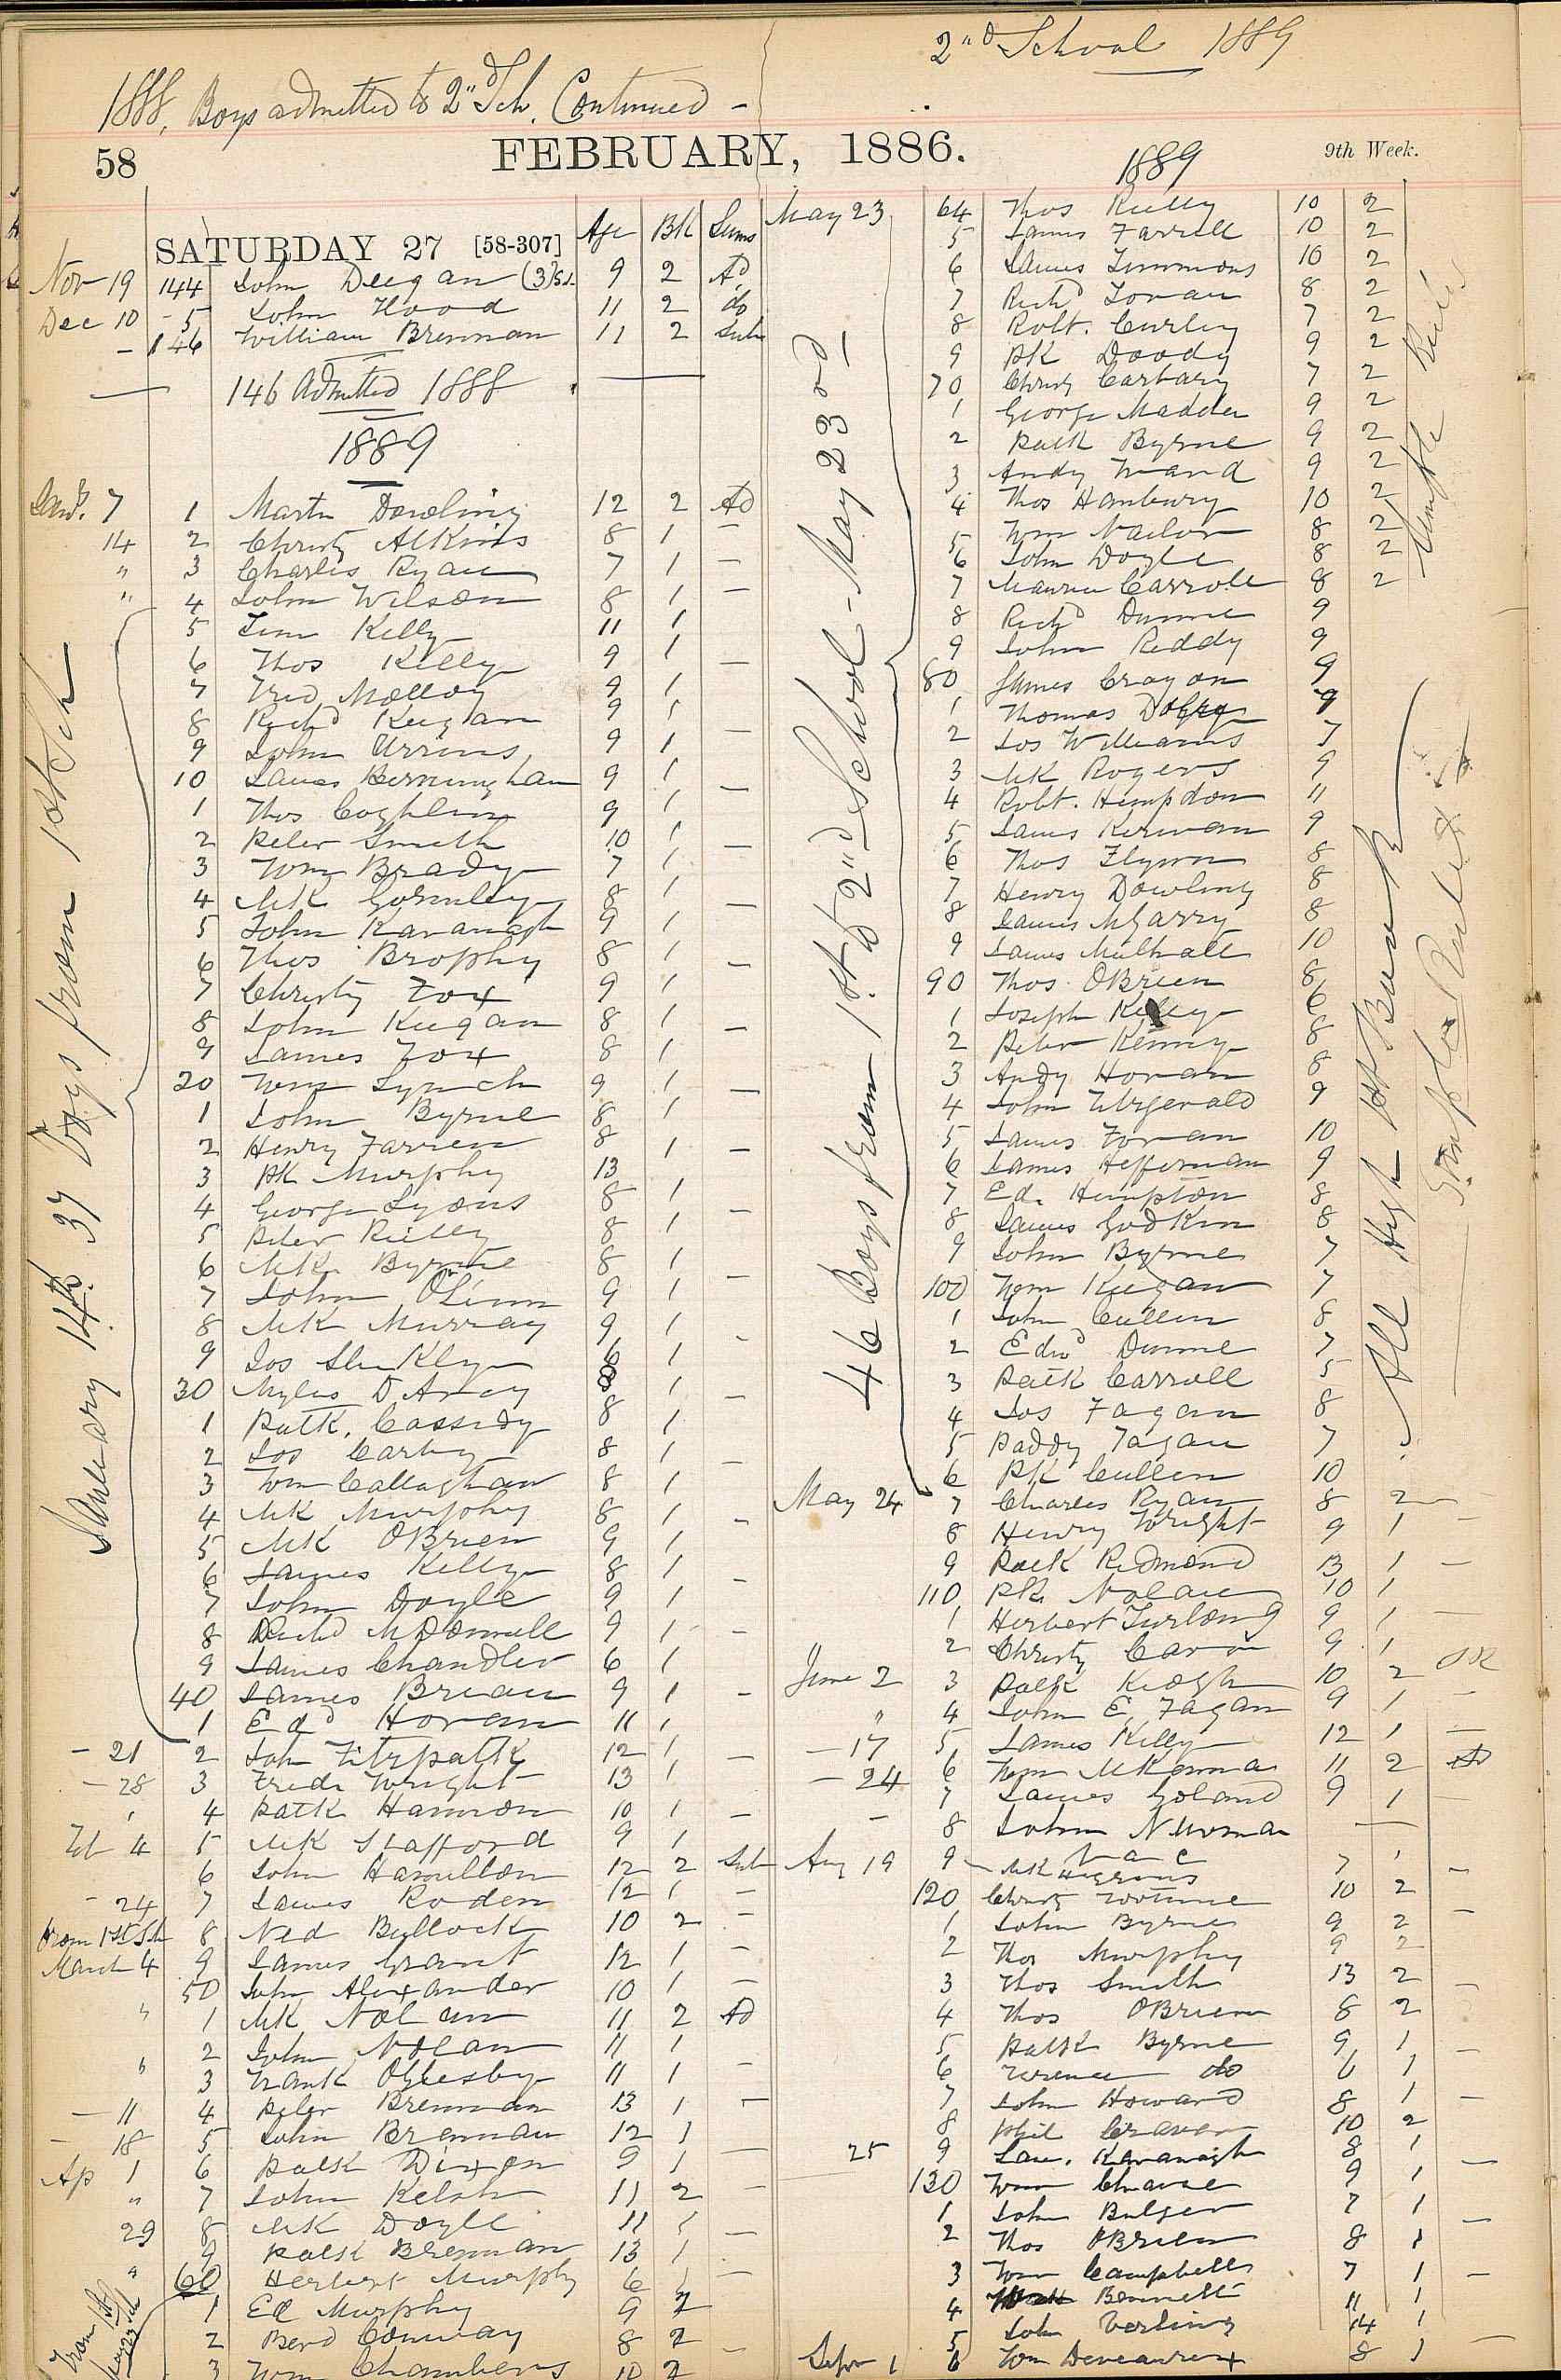 2nd School 1889
1888, Boys admitted to 2nd Sch. Continued -
58 FEBRUARY, 1886. 1889 9th Week.
SATURDAY 27 [58-307] Age BK Sums
Nov 19 144 John Deegan (3) 9 2 Ad
Dec 10 - 5 John Hood 11 2 do
- 146 William Brennan 11 2 Sub
146 Admitted 1888
1889
Jany. 7 1 Martn Dowling 12 2 Ad
14 2 Christy Atkins 8 1 -
" 3 Charles Ryan 7 1 -
" 4 John Wilson 8 1 -
5 Jim Kelly 11 1
6 Thos Kelly 9 1 -
7 Fred Molloy 9 1
8 Richd Keegan 9 1 -
9 John Urrins 9 1
10 James Bermingham 9 1 -
1 Thos Coghlan 9 1
2 Peter Smith 10 1 -
3 Wm Brady 7 1
4 MK Gormley 8 1 -
5 John Kavanagh 9 1
6 Thos Brophy 8 1 -
7 Christy Fox 9 1
8 John Keegan 8 1 -
9 James Fox 8 1
20 Wm Lynch 9 1 -
1 John Byrne 8 1
2 Henry Farren 8 1 -
3 PK Murphy 13
4 George Lyons 8 1 -
5 Peter Reilly 8 1
6 MK Byrne 8 1 -
7 John 9 1
8 MK Murray 9 1 -
9 Jos 6 1
30 Myles D'Arcy 8 1 -
1 Patk. Cassidy 8 1
2 Jos Carty 8 1 -
3 Wm Callaghan 8 1
4 MK Murphy 8 1 -
5 MK OBrien 9 1
6 James Kelly 8 1 -
7 John Doyle 9 1
8 Richd McDonnell 9 1 -
9 James Chandler 6 1
40 James Brien 9 1 -
1 Edd Horan 11 1
January 14th. 37 Boys from 1st Sch
- 21 2 John Fitzpatk 12 1 -
- 28 3 Fredk Wright 13 1
" 4 Patk Hannon 10 1 -
Feb 4 5 MK Stafford 9 1
6 John Hamilton 12 2 Sub
- 24 7 James Roden 12 1 -
From 1st Sch 8 Ned Bullock 10 2 -
March 4 9 James Grant 12 1 -
50 John Alexander 10 1 -
" 1 MK Nolan 11 2 Ad
2 John Nolan 11 1
" 3 Frank Oglesby 11 1 -
- 11 4 Peter Brennan 13 1 -
- 18 5 John Brennan 12 1
Ap 1 6 Patk Dixon 9 1 -
" 7 John Kelsh 11 2 -
29 8 MK Doyle 11 1 -
9 Patk Brennan 13 1
" 60 Herbert Murphy 6 1 -
1 Ed Murphy 9 2
2 Bend Conway 8 2 -
3 Wm Chambers 10 2
From 1st
May 23 64 Thos Reilly 10 2
5 James Farrell 10 2
6 James Timmons 10 2
7 Richd Foran 8 2
8 Robt. Curley 7 2
9 PK Doody 9 2
70 Christy Carbary 7 2
1 George Madden 9 2
2 Patk Byrne 9 2
3 Andy Ward 9 2
4 Thos Hanbury 10 2
5 Wm Nailor 8 2
6 John Doyle 8 2
7 Maurice Carroll 8 2
Simple Rules
8 Richd Dunne 9
9 John Reddy 9
80 James Crayon 9
1 Thomas 9
2 Jos Williams 7
3 MK Rogers 9
4 Robt. Hempdon 11
5 James Kerwan 9
6 Thos Flynn 8
7 Henry Dowling 8
8 James McGarry 8
9 James Mulhall 10
90 Thos OBrien 8
1 Joseph Kelly 6
2 Peter Kenny 8
3 Andy Horan 8
4 John Fitzgerald 9
5 James Foran 10
6 James Heffernan 9
7 Ed. Hempton 8
8 James Godkin 8
9 John Byrne 7
100 Wm Keegan 7
1 John Cullen 8
2 Edwd Dunne 7
3 Patk Carroll 5
4 Jos Fagan 8
5 Paddy Fagan 7
6 PK Cullen 10
46 Boys from 1st to 2nd School - May 23rd -
All High 1st Book
Simple Rules
May 24 7 Charles Ryan 8 2 -
8 Henry Wright 9 1 -
9 Patk Redmond 13 1 -
110 PK Nolan 10 1
1 Herbert Furlong 9 1 -
2 Christy 9 1
June 2 3 Patk Keogh 10 2
" 4 John E. Fagan 9 1 -
- 17 5 James Kelly 12 1 -
- 24 6 Wm McKenna 11 2 Ad
7 James Goland 9 1 -
- 8 John Newman -
Vac
Aug 19 9 MK Higgins 7 1 -
120 Christy 10 2
1 John Byrne 9 2 -
2 Thos Murphy 9 2
3 Thos Smith 13 2 -
4 Thos OBrien 8 2
5 Patk Byrne 9 1 -
6 Terence do 6 1
7 John Howard 8 1 -
8 Phil Craven 10 2
25 9 Law. Kavanagh 8 1
130 Wm 9 1 -
1 John Bulger 7 1
2 Thos OBrien 8 1 -
3 Wm Campbell 7 1 -
4 Bennett 11 1
5 John Verling 14 1
Sepr 1 6 Wm Deveareux 8 1 -